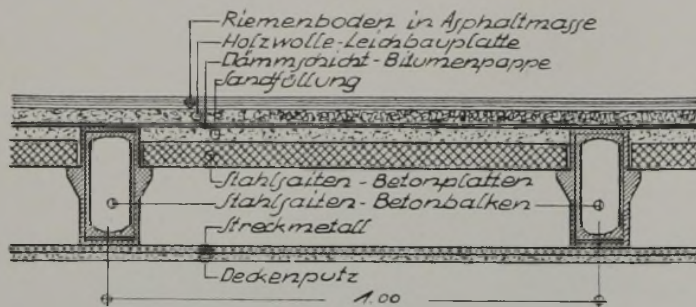 Riemenboden in Asphaltmasse
Holzwolle-Leichbauplatte
Dämmschicht-Bitumenpappe
Sandfüllung
Stahlsaiten-Betonplatten
Stahlsaiten-Betonbalken
Streckmetall
Deckenputz
1.00